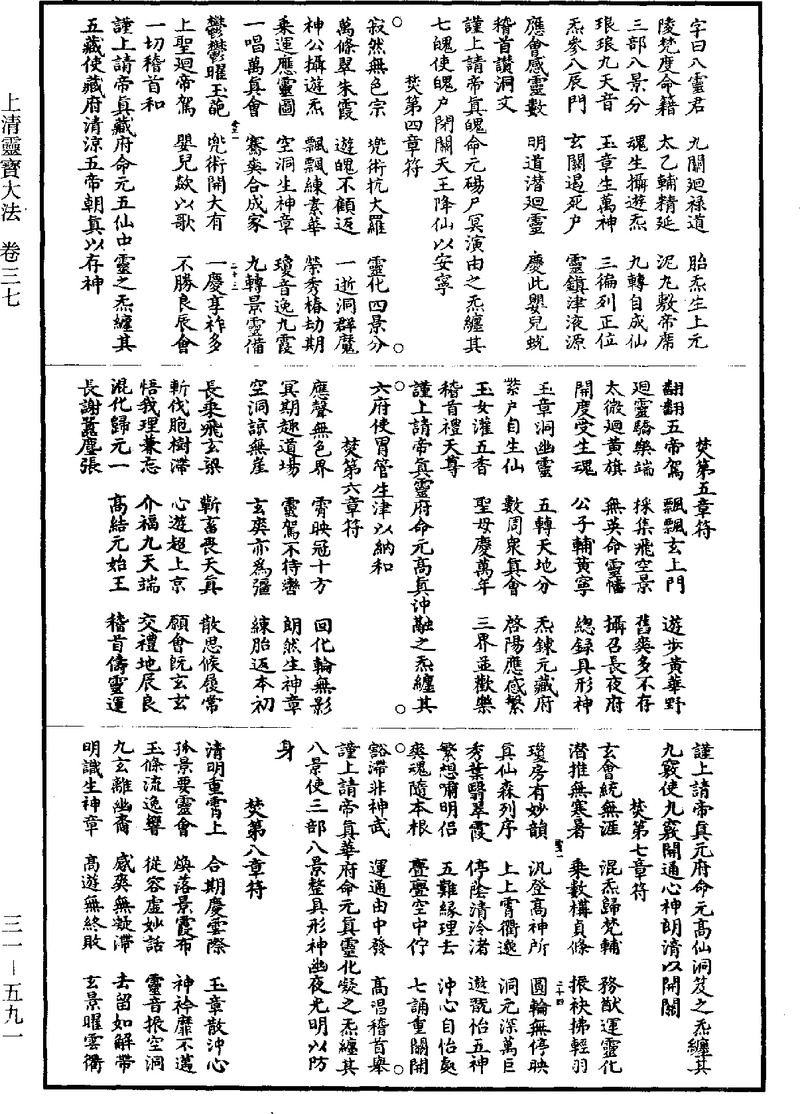 字曰八靈君　九關廻祿道　胎炁生上元
陵梵度命籍　太乙輔精延　泥丸敷帝席
三部八景分　魂生攝遊炁　九轉自成仙
琅琅九天音　玉章生萬神　三徧列正位
炁參八辰門　玄關遏死戶　靈鎮津液源
應會感靈數　明道潜廻靈　慶此嬰兒蛻
稽首讚洞文
謹上請帝真魄命元碭尸冥演由之炁纏其
七魄使魄戶閉關天王降仙以安寧
焚第四章符
寂然無色宗　兜術抗大羅　靈化四景分
萬條翠朱霞　遊魄不顧返　一逝洞群魔
神公攝遊炁　飄飄練素華　榮秀椿劫期
乘運應靈圖　空洞生神章　瓊音逸九霞
一唱萬真會　騫爽合成家　九轉景靈備
鬱鬱曜玉葩　兜術開大有　一慶享祚多
上聖廻帝駕　嬰兒歘以歌　不勝良辰會
一切稽首和
謹上請帝真藏府命元五仙中靈之炁纏其
五藏使藏府清涼五帝朝真以存神
焚第五章符
翩翩五帝駕　飄飄玄上門　遊步黃華野
廻靈驕樂端　採集飛空景　舊爽多不存
太微廻黃旗　無英命靈幡　攝召長夜府
開度受生魂　公子輔黃寧　總錄具形神
玉章洞幽靈　五轉天地分　炁鍊元藏府
紫戶自生仙　數周衆真會　啓陽應感繁
玉女灌五香　聖母慶萬年　三界並歡樂
稽首禮天尊
謹上請帝真靈府命元高真冲融之炁纏其
六府使胃管生津以納和
焚第六章符
應聲無色界　霄映冠十方　回化輪無影
冥期趣道場　靈駕不待轡　朗然生神章
空洞諒無崖　玄爽亦爲彊　練胎返本初
長乘飛玄梁　斬畜喪天真　散思候履常
斬伐胞樹滯　心遊超上京　願會旣玄玄
悟我理兼忘　介福九天端　交禮地辰良
混化歸元一　高結元始王　稽首儔靈運
長謝囂塵張
謹上請帝真元府命元高仙洞笈之炁纏其
九竅使九竅開通心神朗清以開關
焚第七章符
玄會統無涯　混炁歸梵輔　務猷運靈化
潜推無寒暑　乘數構貞條　振袂拂輕羽
瓊房有妙韻　汎登高神所　圓輪無停映
真仙森列序　上上霄衢邈　洞元深萬巨
秀葉翳翠霞　停蔭清泠渚　遨翫怡五神
繁想嘯明侶　五難緣理去　冲心自怡處
爽魂隨本根　亹亹空中佇　七誦重關開
豁滯非神武　運通由中發　高唱稽首舉
謹上請帝真華府命元真靈化凝之炁纏其
八景使三部八景整具形神幽夜光明以防
身
焚第八章符
清明重霄上　合期慶雲際　玉章散沖心
孫景要靈會　煥落景霞布　神衿靡不邁
玉條流逸響　從容虛妙話　靈音振空洞
九玄離幽裔　感爽無凝滯　去留如解帶
明識生神章　高遊無終敗　玄景曜雲衢
上清靈寶大法　卷三七
三一—五九一